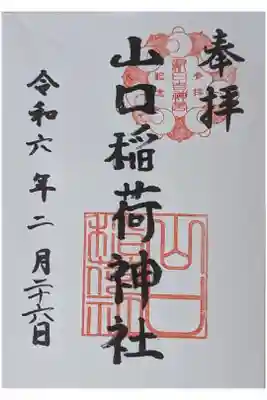 奉拝
山口稲荷神社
令和六年二月二十六日